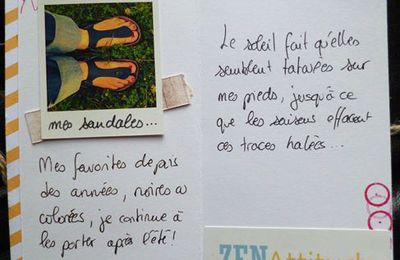 mes sandales...
Mes favorites depuis
des années, noires ou
colorées, je continue à
les porter après l'été !
Le soleil fait qu'elles
semblent tatouées sur
mes pieds, jusqu'à ce
que les saisons effacent
ces traces halées...
ZEN Attitude